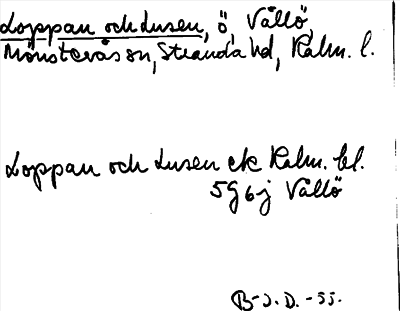 Loppan och Lusen, ö, Vållö,
Mönsterås sn, Stranda hd, Kalm. l.
Loppan och Lusen ek Kalm. bl.
5G6j Vållö
B-J.D. -55.